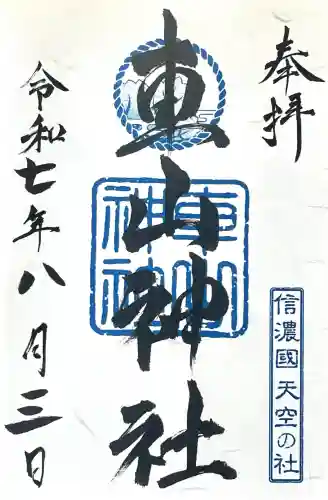 奉拝
信濃國 天空の社
車山神社
車山神社
令和七年八月三日